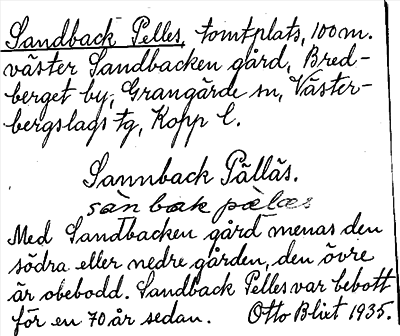 Sandback Pelles, tomtplats, 100 m.
väster Sandbacken gård, Bred-
berget by, Grangärde sn, Väster-
bergslags tg, Kopp l.
Sannback Pälläs.
sàn bak pæ̀læs
Med Sandbacken gård menas den
södra eller nedre gården, den övre
är obebodd. Sandback Pelles var bebott
för en 70 år sedan. Otto Blixt 1935.